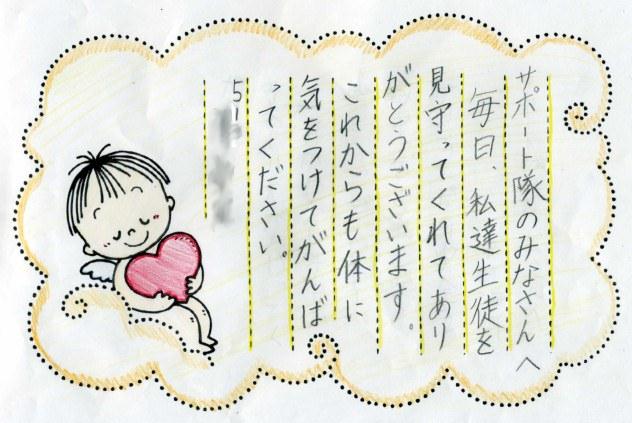 サポート隊のみなさんへ
毎日、私達生徒を
見守ってくれてあり
がとうございます。
これからも体に
気をつけてがんば
ってください。
5-